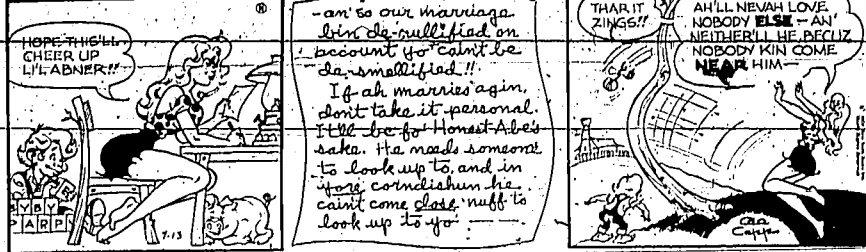 HOPE THIS'LL
CHEER UP
LI'L ABNER!!
YBY
ARP
7-13
-an' so our marriage
bin de-nullified on
account yo' cain't be
de-smellified!!
If ah marries agin,
don't take it personal.
It'll be fo' Honest Abe's
sake. He needs someone
to look up to, and in
yore corndishun he
cain't come close 'nuff to
look up to yo'
THAR IT
ZINGS!!
AH'LL NEVAH LOVE
NOBODY ELSE - AN'
NEITHER'LL HE, BECUZ
NOBODY KIN COME
NEAR HIM-
Al
Capp